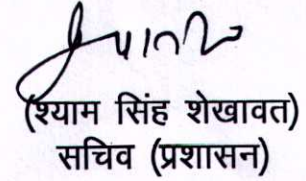 (श्याम सिंह शेखावत)
सचिव (प्रशासन)